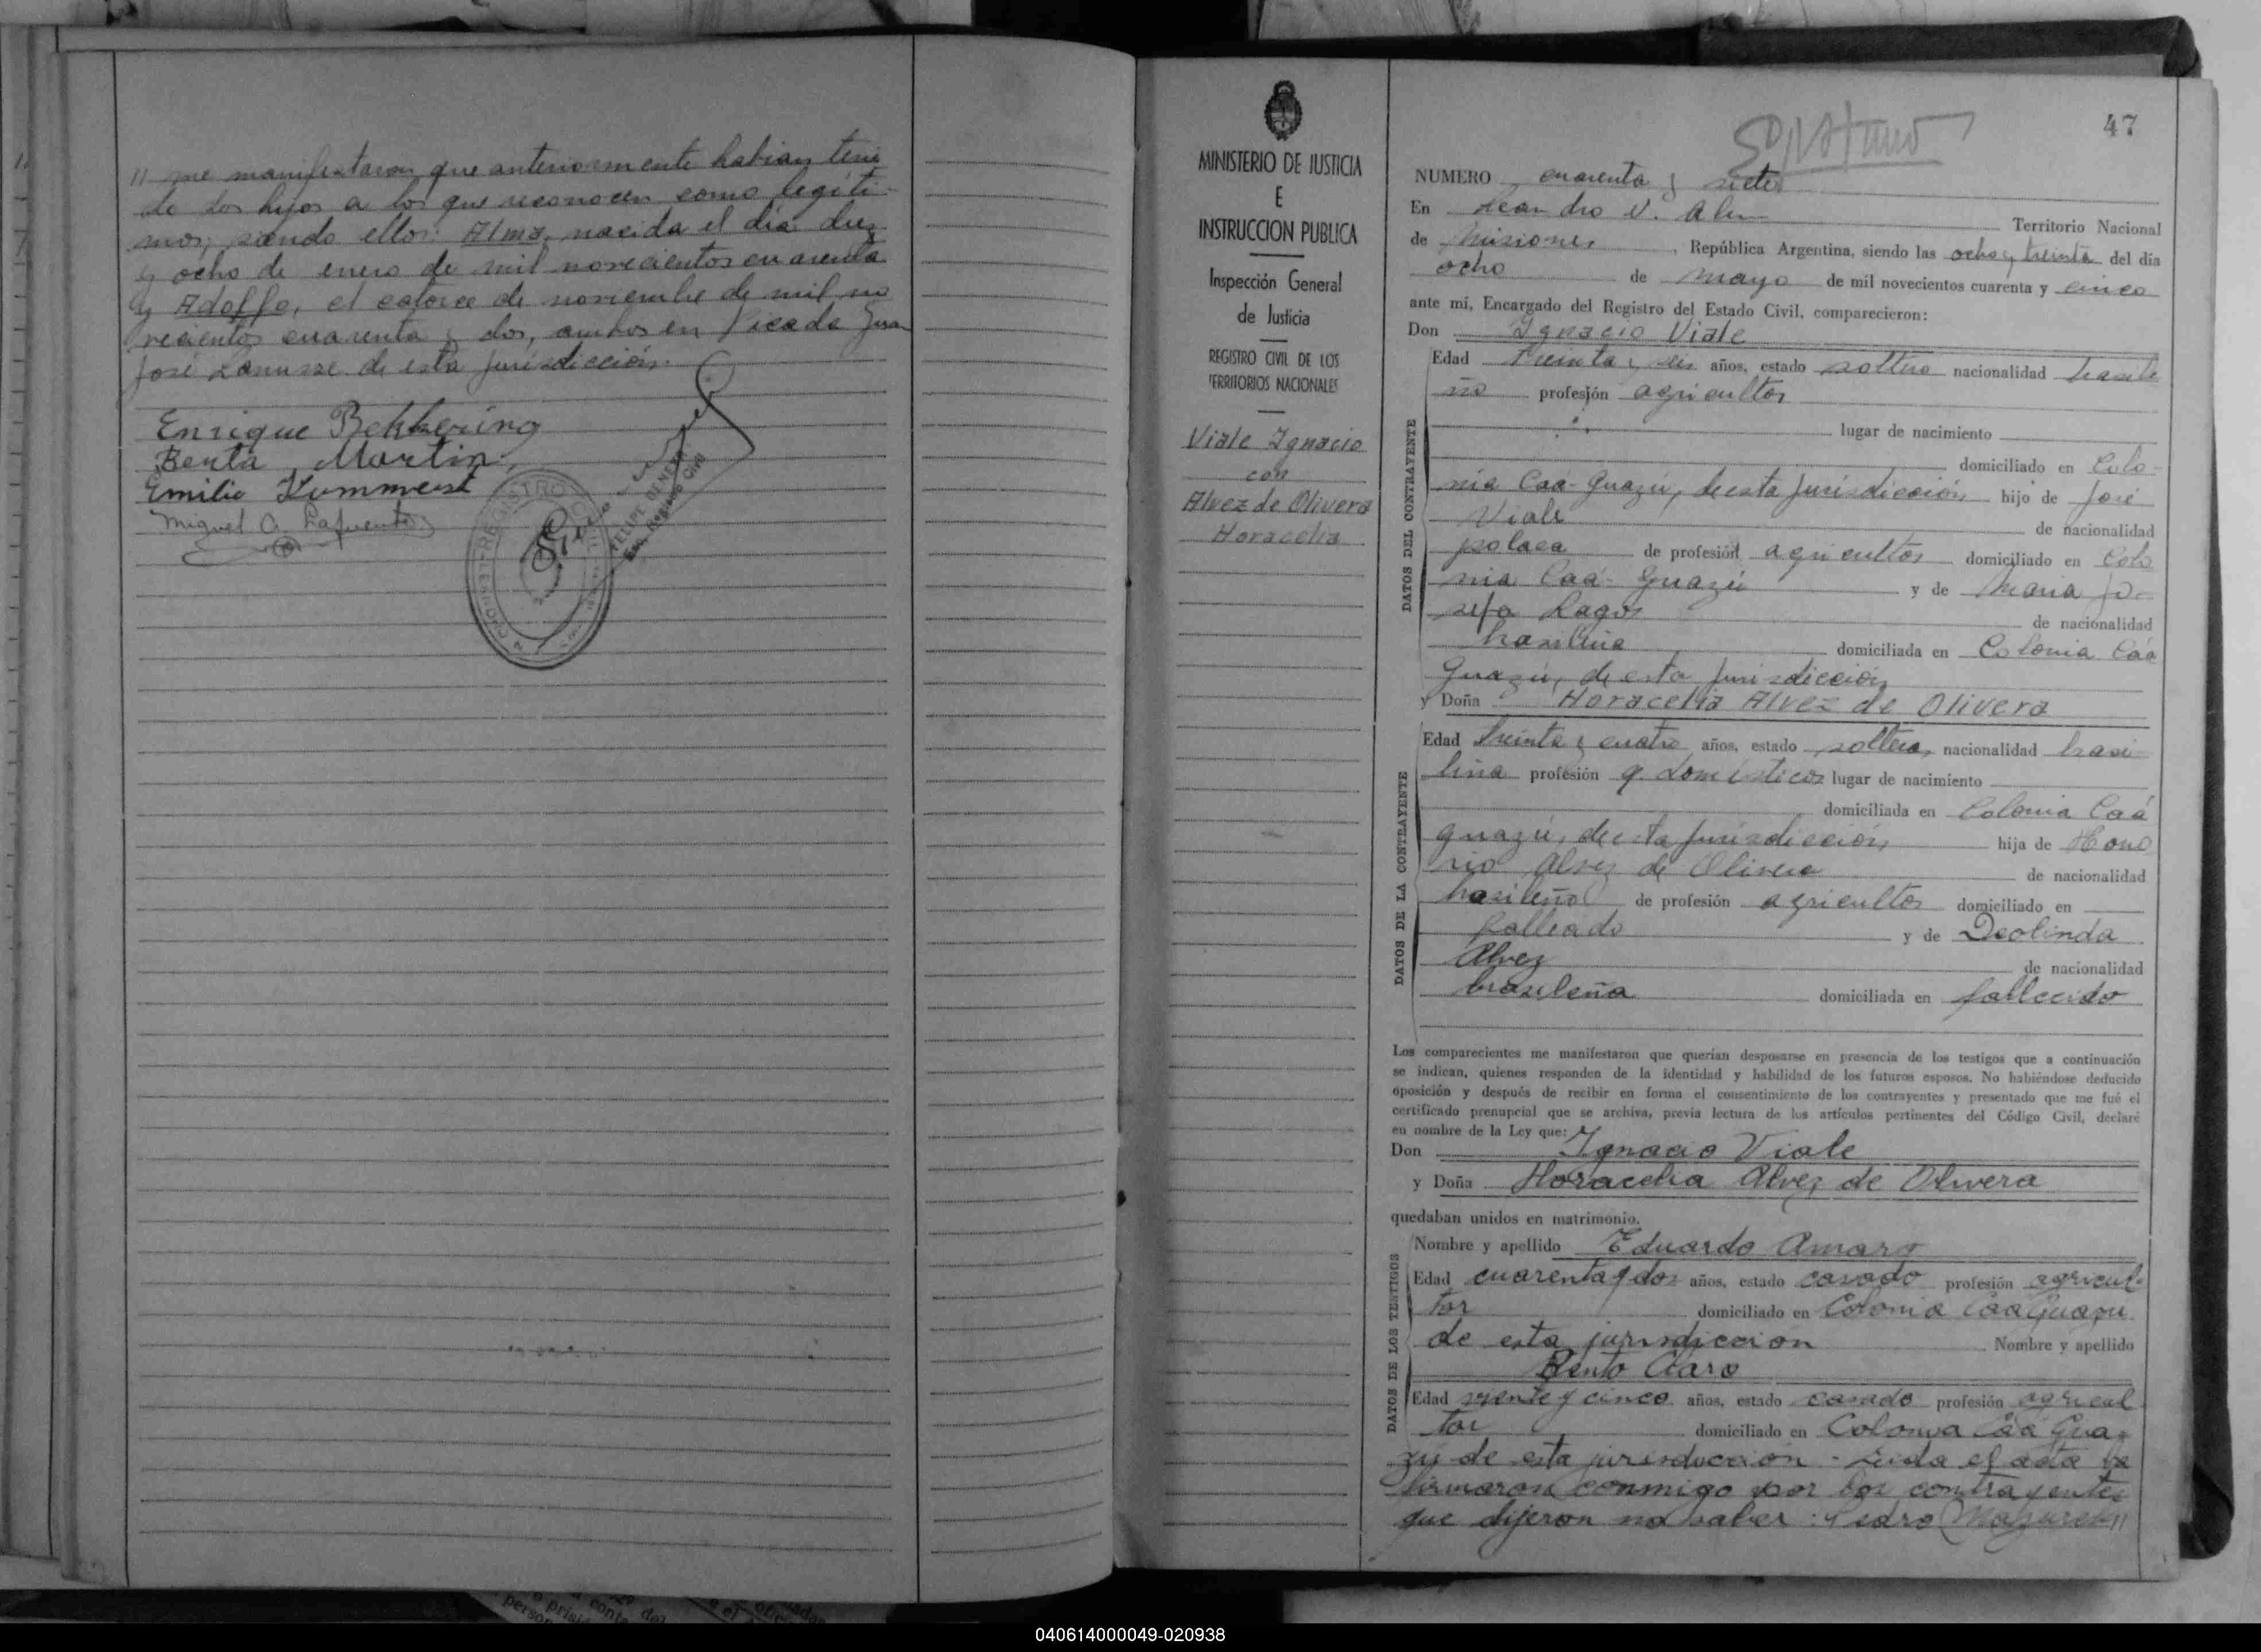 " me manifestaron que anteriormente habian teni
do dos hijos a los que reconocen como legiti-
mos; siendo ellos: Alma, nacida el día diez
y ocho de enero de mil novecientos cuarenta
y Adolfo, el catorce de noviembre de mil no
vecientos cuarenta y dos, ambos en Picada Juan
José Lanusse de esta jurisdicción.
Enrique Behkering
Berta Martin
Emilio Kummerst
Miguel A. Lafuente
REGISTRO CIVIL
FELIPE GENES
Enc. Registro Civil
MINISTERIO DE JUSTICIA
E
INSTRUCCION PUBLICA
Inspección General
de Justicia
REGISTRO CIVIL DE LOS
TERRITORIOS NACIONALES
Viale Ignacio
con
Alvez de Olivera
Horacelia
47
NUMERO cuarenta y siete
En Leandro N. Alem Territorio Nacional
de Misiones, República Argentina, siendo las ocho y treinta del día
ocho de mayo de mil novecientos cuarenta y cinco
ante mí, Encargado del Registro del Estado Civil, comparecieron:
Don Ignacio Viale
DATOS DEL CONTRAYENTE
Edad treinta y seis años, estado soltero nacionalidad brasile
ño profesión agricultor
lugar de nacimiento
domiciliado en Colo-
nia Caá-Guazú, de esta jurisdicción hijo de José
Viale de nacionalidad
polaca de profesión agricultor domiciliado en Colo
nia Caá-Guazú y de Maria Jo-
sefa Lagos de nacionalidad
brasileña domiciliada en Colonia Caá
Guazú, de esta jurisdicción
y Doña Horacelia Alvez de Olivera
DATOS DE LA CONTRAYENTE
Edad treinta y cuatro años, estado soltera, nacionalidad brasi
leña profesión q. domésticos lugar de nacimiento
domiciliada en Colonia Caá
Guazú, de esta jurisdicción, hija de Hono
rio Alvez de Olivera de nacionalidad
brasileña de profesión agricultor domiciliado en
fallecido y de Deolinda
Alvez de nacionalidad
brasileña domiciliada en fallecido
Los comparecientes me manifestaron que querían desposarse en presencia de los testigos que a continuación
se indican, quienes responden de la identidad y habilidad de los futuros esposos. No habiéndose deducido
oposición y después de recibir en forma el consentimiento de los contrayentes y presentado que me fué el
certificado prenupcial que se archiva, previa lectura de los artículos pertinentes del Código Civil, declaré
en nombre de la Ley que:
Don Ignacio Viale
y Doña Horacelia Alvez de Olivera
quedaban unidos en matrimonio.
DATOS DE LOS TESTIGOS
Nombre y apellido Eduardo Amaro
Edad cuarenta y dos años, estado casado profesión agricul-
tor domiciliado en Colonia Caa Guazu
de esta jurisdiccion Nombre y apellido
Bento Claro
Edad veinte y cinco años, estado casado profesión agricul
tor domiciliado en Colonia Caá Gua-
zú de esta jurisdiccion - Leida el acta la
firmaron conmigo por los contrayentes
que dijeron no saber: Pedro
040614000049-020938